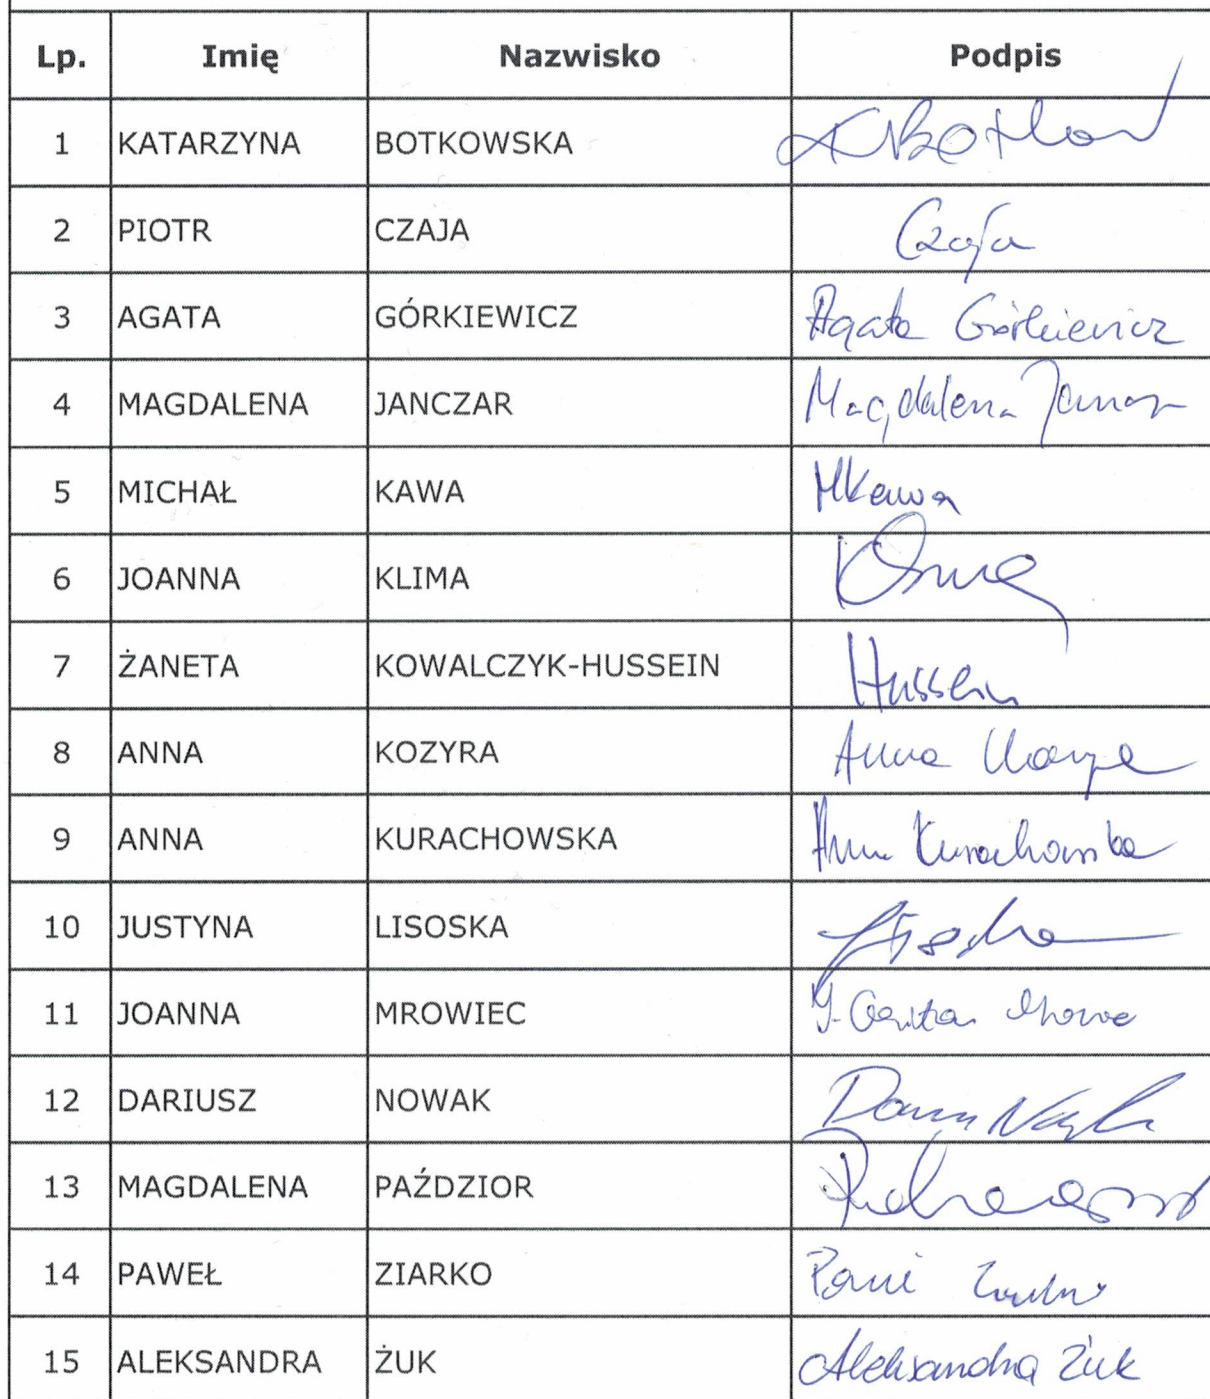 Lp. Imię Nazwisko Podpis
1 KATARZYNA BOTKOWSKA
2 PIOTR CZAJA Czaja
3 AGATA GÓRKIEWICZ Agata Górkiewicz
4 MAGDALENA JANCZAR Magdalena
5 MICHAŁ KAWA MKawa
6 JOANNA KLIMA
7 ŻANETA KOWALCZYK-HUSSEIN Hussein
8 ANNA KOZYRA Anna
9 ANNA KURACHOWSKA Anna Kurachowska
10 JUSTYNA LISOSKA
11 JOANNA MROWIEC
12 DARIUSZ NOWAK
13 MAGDALENA PAŹDZIOR
14 PAWEŁ ZIARKO
15 ALEKSANDRA ŻUK Aleksandra Żuk